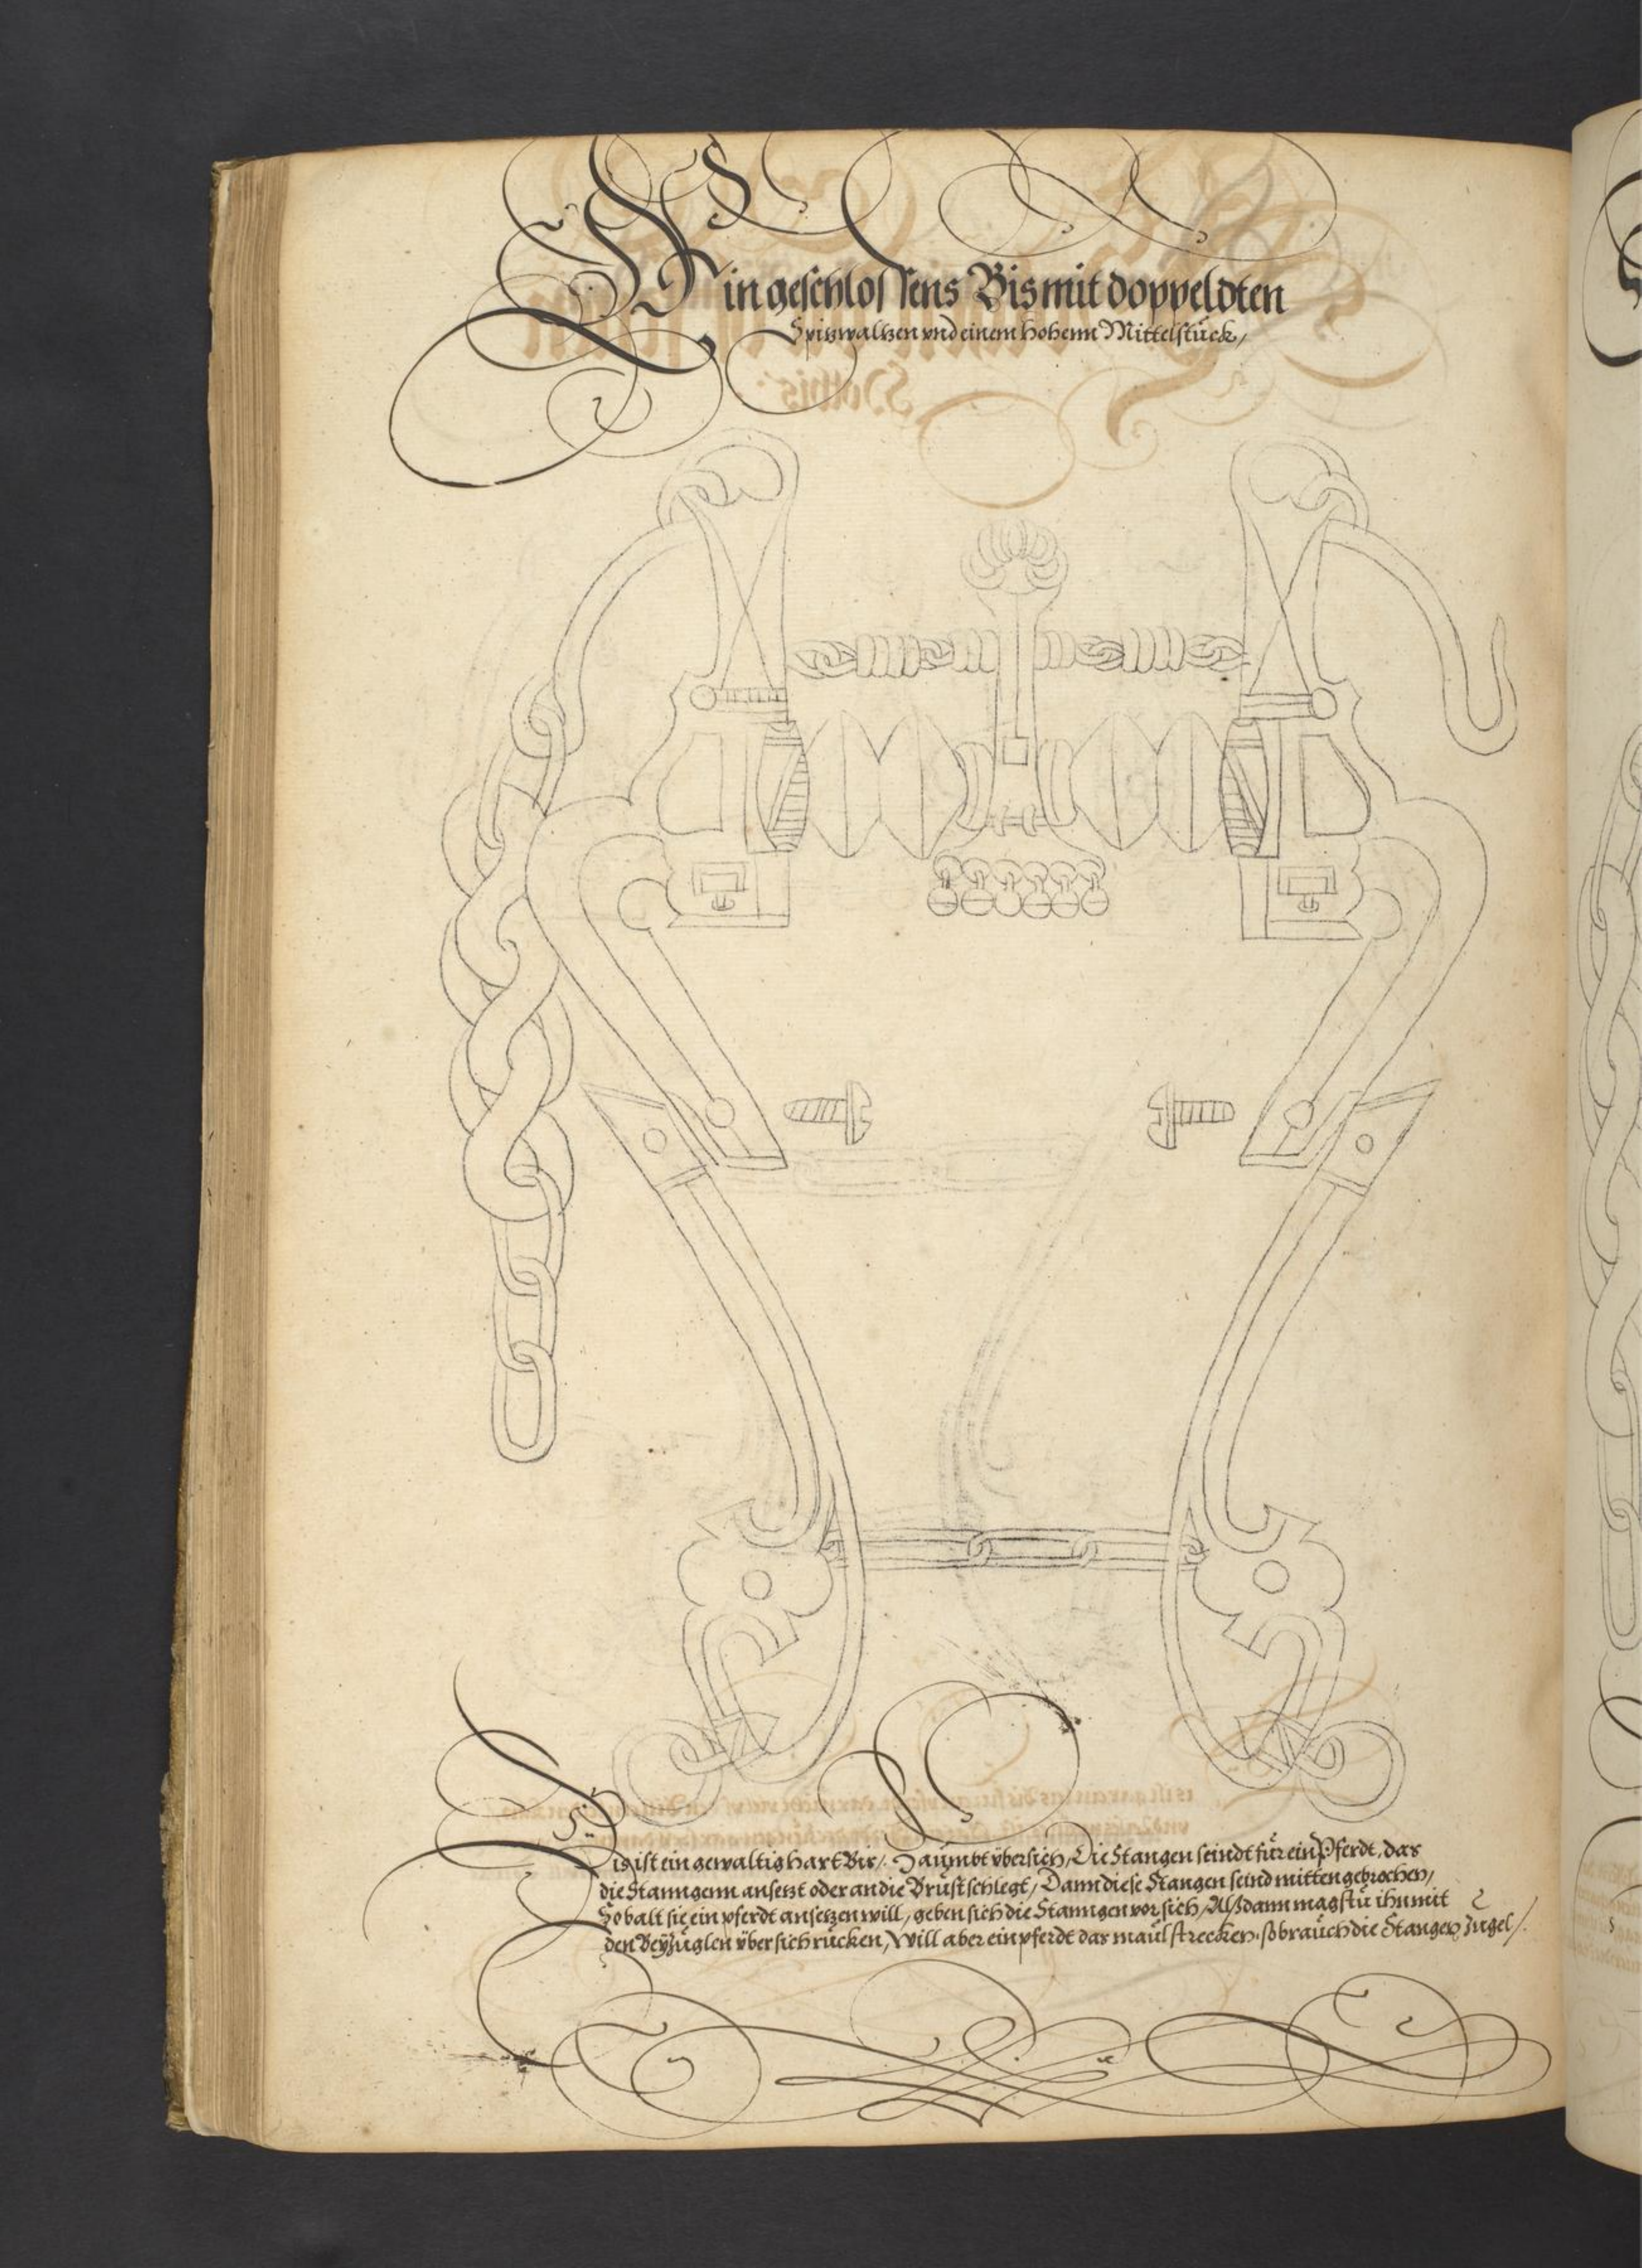 Ein geschlossens Bis mit doppeldten
Spizwaltzen vnd einem hohenn Mittelstück,
Dis ist ein gewaltig hart Bis, Zäumbt übersich, Die Stangen seindt für ein Pferdt, das
die Stanngenn ansetzt oder an die Brust schlegt, Dann diese Stangen seind mitten gebrochen,
Sobalt sie ein pferdt ansetzen will, geben sich die Stanngen vor sich, Alßdann magstu ihn mit
den Beyzüglen übersich rücken, Will aber ein pferdt das maul strecken, so brauch die Stangen Zugel,